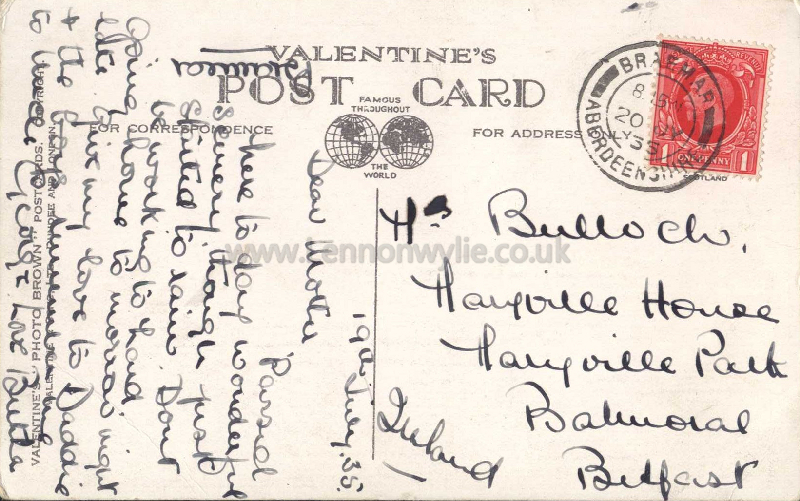 VALENTINE'S
POST CARD
FAMOUS
THROUGHOUT
THE
WORLD
FOR CORRESPONDENCE
FOR ADDRESS ONLY
BRAEMAR
ABERDEENSHIRE
20 JY
35
1 ONE PENNY 1
SCOTLAND
Braemar
19th July, 35.
Dear Mother
Passed
here to day wonderful
scenery though just
started to rain Dont
be working to hard
going home to morrow night
late give my love to Daddie
& the
to Uncle George Love
VALENTINE'S "PHOTO BROWN" POSTCARDS. COPYRIGHT.
VALENTINE & SONS, LTD., DUNDEE AND LONDON.
Mrs Bulloch,
Maryville House
Maryville Park
Balmoral
Belfast
Ireland
www.lennonwylie.co.uk